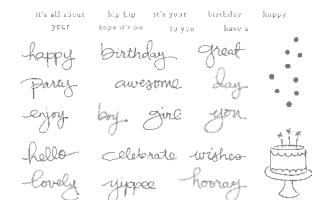 it's all about hip hip it's your birthday happy
your hope it's one to you have a
happy birthday great
party awesome day
enjoy boy girl you
hello celebrate wishes
lovely yippee hooray